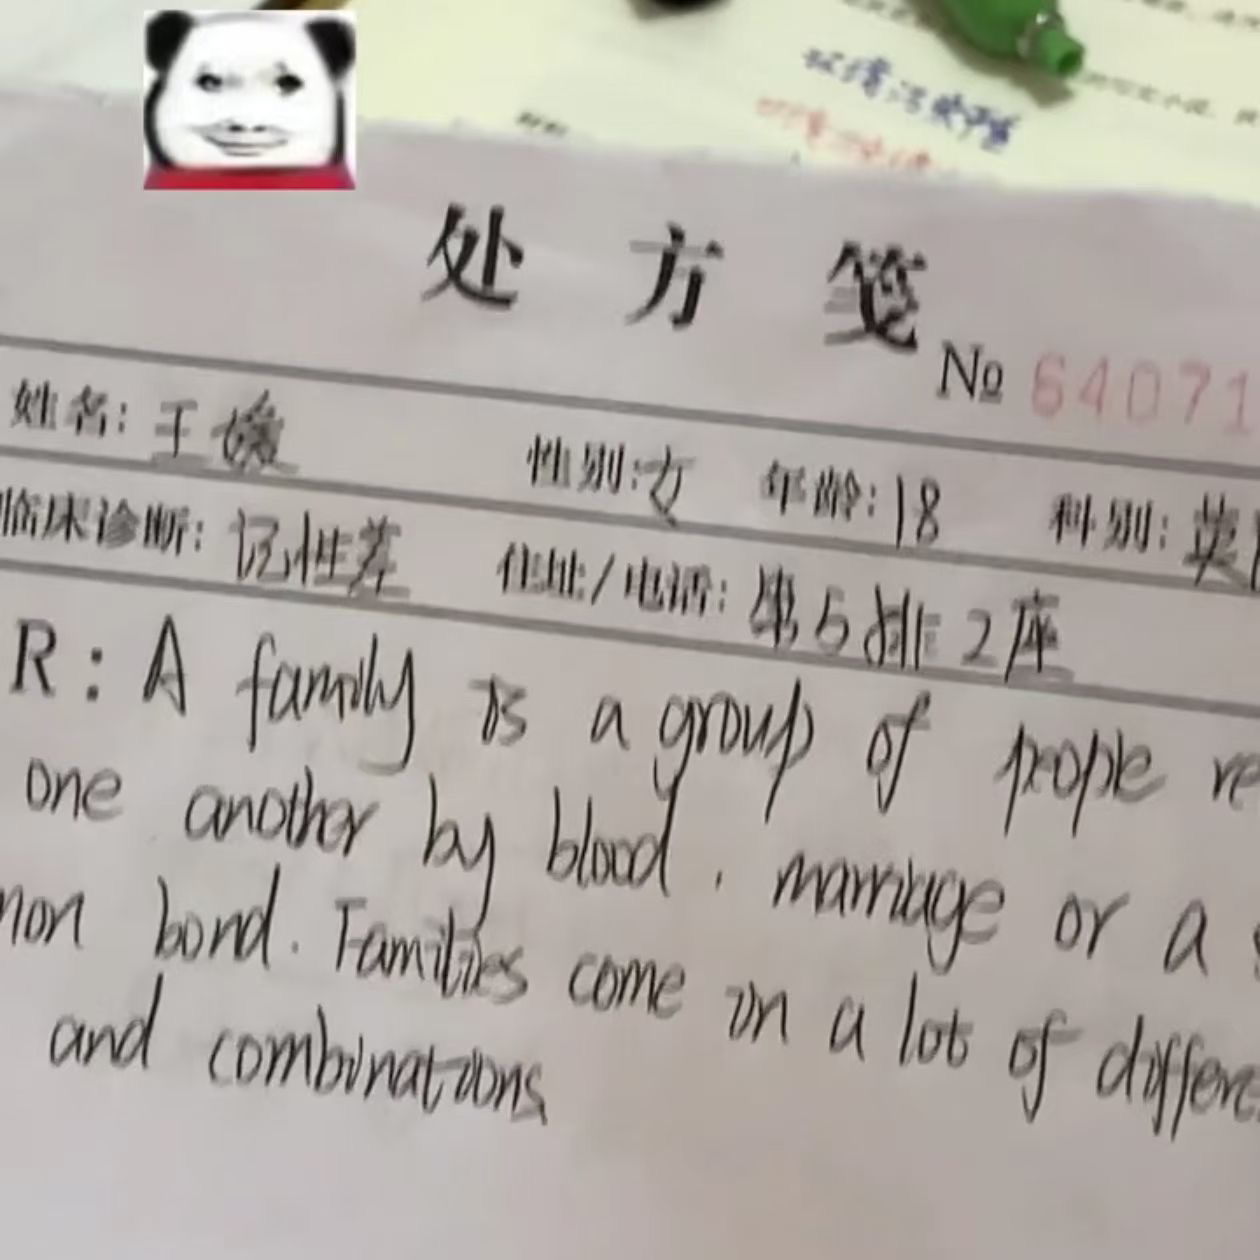 处方笺
№ 64071
姓名: 王
性别: 女 年龄: 18 科别: 英
临床诊断: 记性差 住址/电话: 第5排2座
R: A family is a group of people re
one another by blood, marriage or a
mon bond. Families come in a lot of differe
and combinations